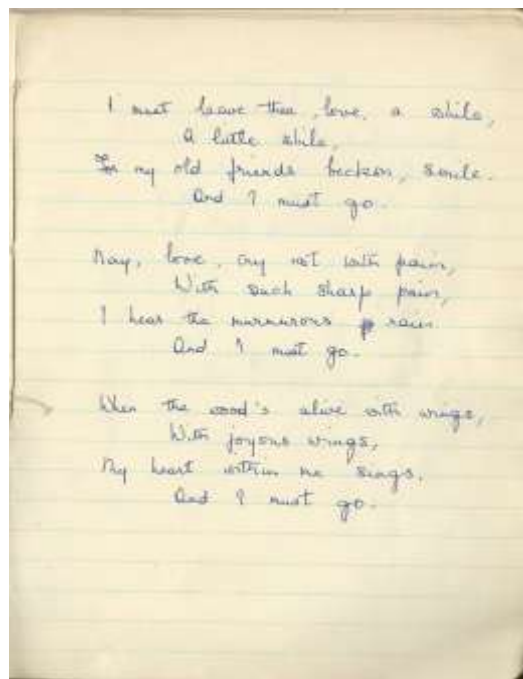 I must leave thee, love, a while,
A little while,
For my old friends beckon, smile.
And I must go.
Nay, love, cry not with pain,
With such sharp pain,
I hear the murmurous rain
And I must go.
When the wood's alive with wings,
With joyous wings,
My heart within me sings.
And I must go.